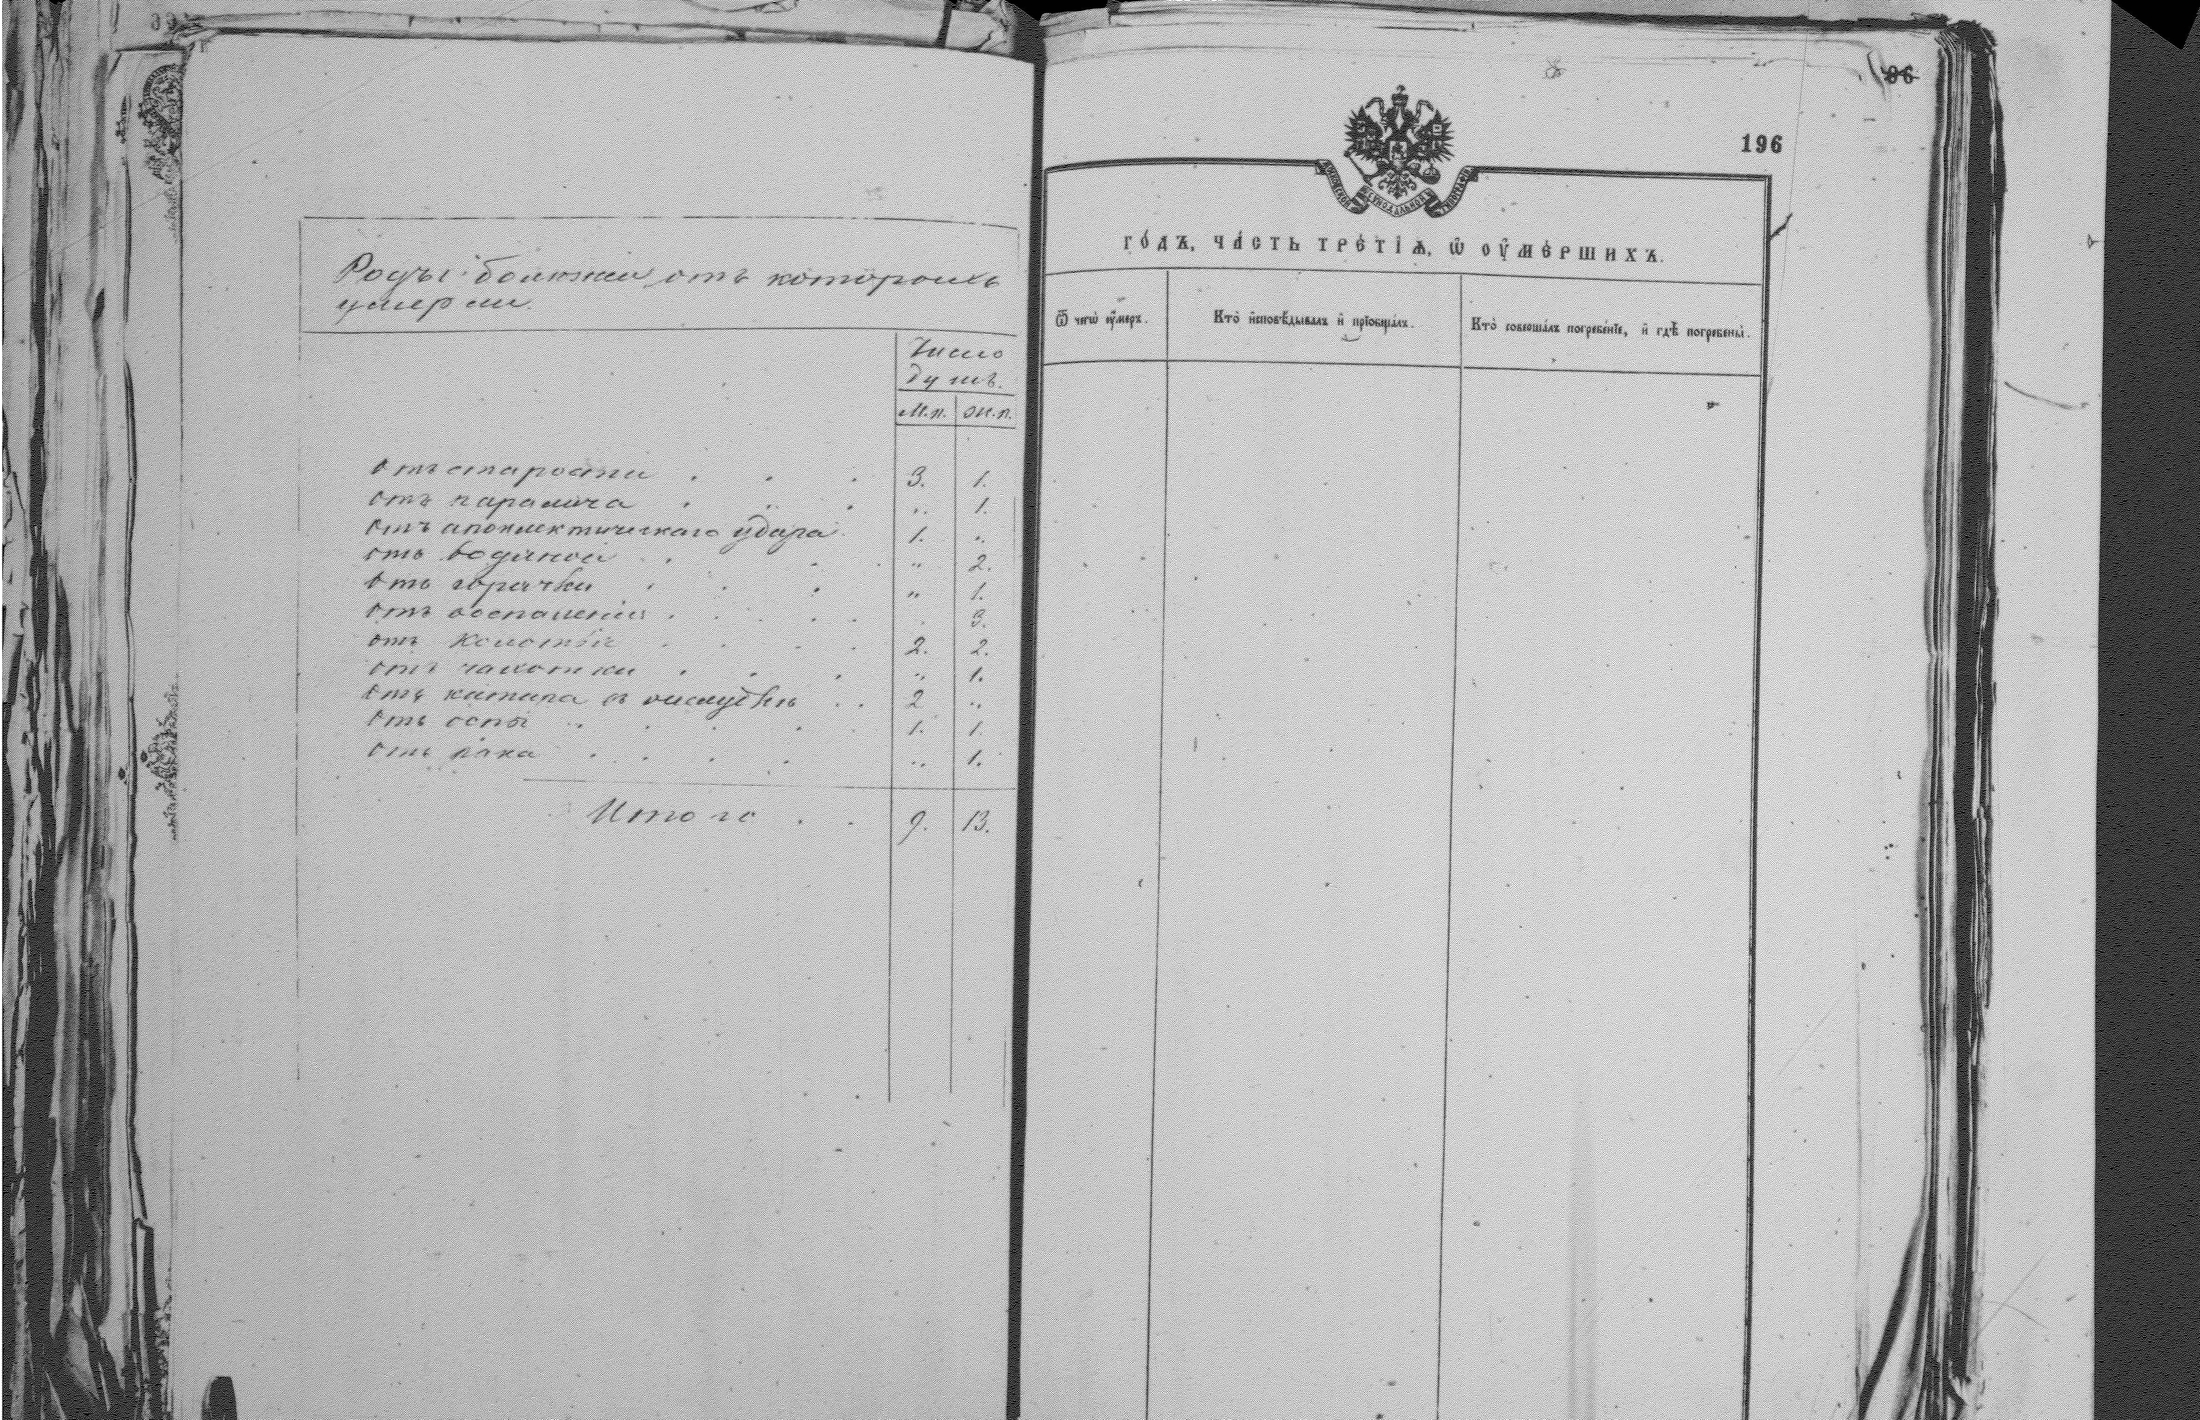 Роды болѣзни отъ которыхъ
умерли.
Число
душъ.
М.п. Ж.п.
отъ старости . . . 3. 1.
отъ паралича . . . „ 1.
отъ апоплектическаго удара. 1. „
отъ водяной . . . „ 2.
отъ горячки . . . „ 1.
отъ воспаленія . . . . . 3.
отъ колотья . . . . 2. 2.
отъ чахотки . . . „ 1.
отъ катара въ желудкѣ . . 2 „
отъ оспы . . . . 1. 1.
отъ рака . . . . „ 1.
Итого . . 9. 13.
96
196
МОСКОВСКОЙ СѴНОДАЛЬНОЙ ТИПОГРАФІИ
ГО́ДЪ, ЧА́СТЬ ТРЕ́ТІѦ, Ѡ҆ ОУ҆МЕ́РШИХЪ.
Ѿ чегѡ̀ оу҆́меръ.
Кто̀ и҆сповѣ́дывалъ и҆ прїобща́лъ.
Кто̀ соверша́лъ погребе́нїе, и҆ гдѣ̀ погребены̀.